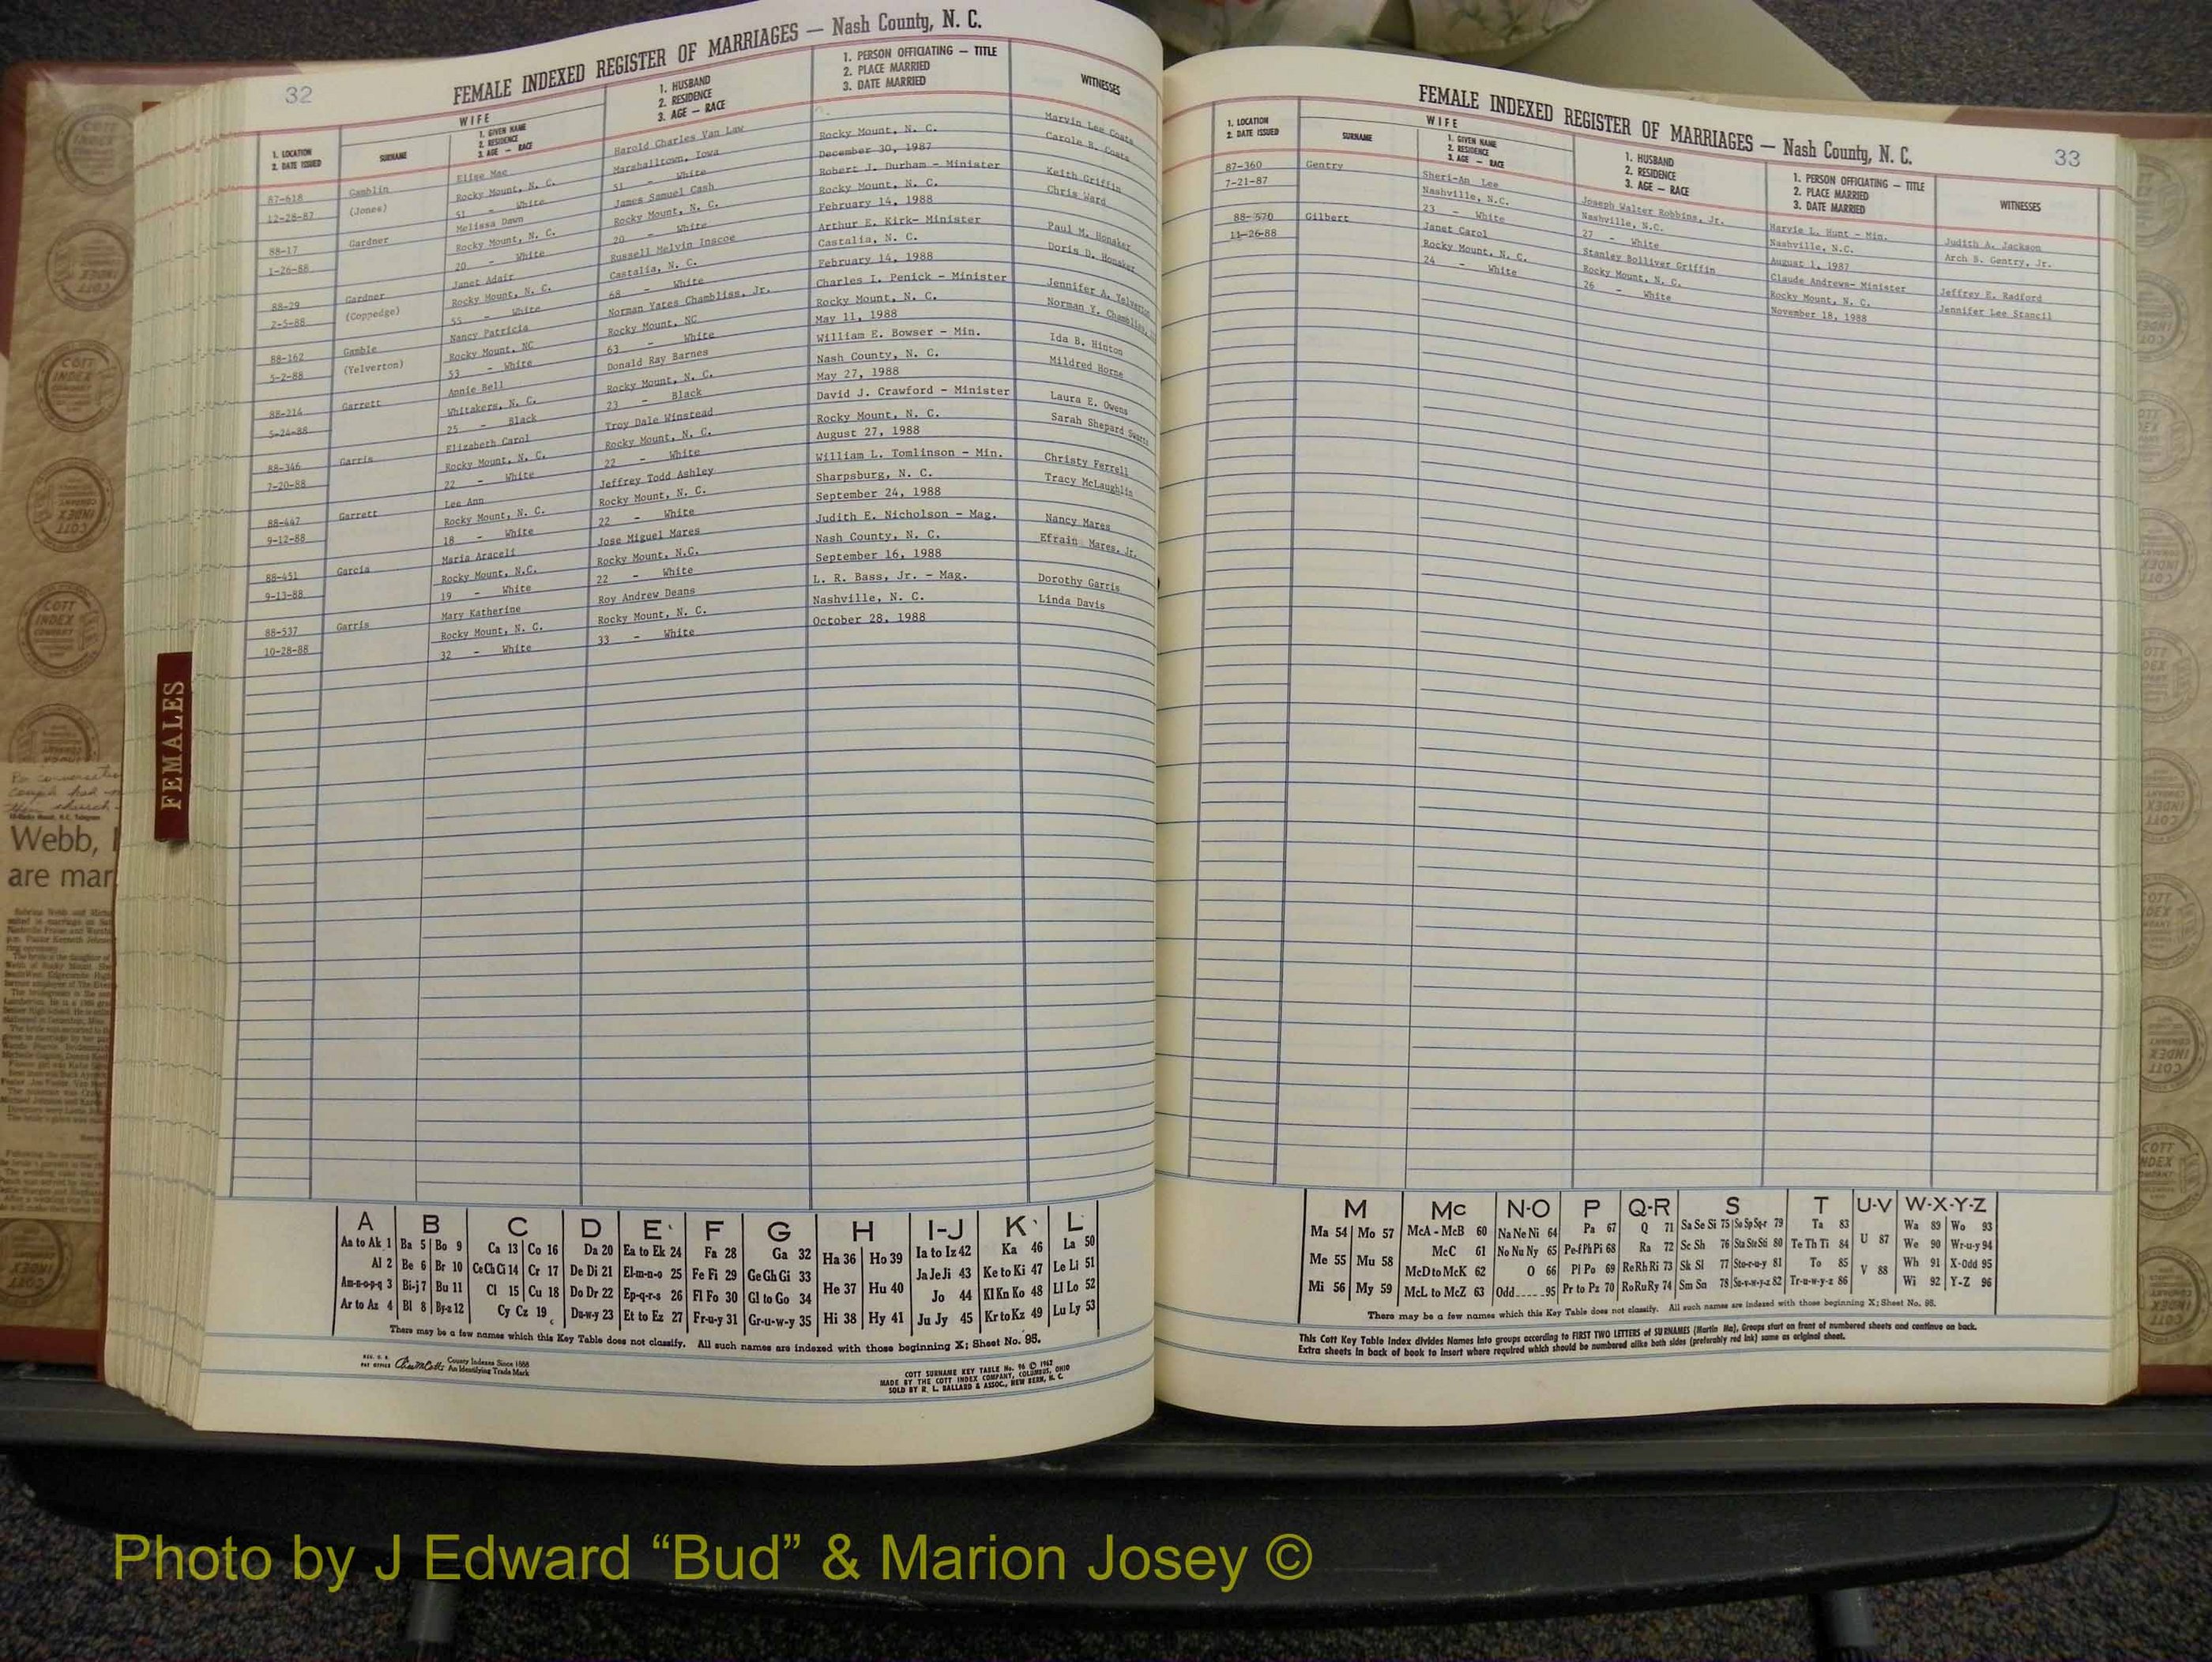 32
FEMALE INDEXED REGISTER OF MARRIAGES — Nash County, N. C.
1. LOCATION
2. DATE ISSUED
SURNAME
WIFE
1. GIVEN NAME
2. RESIDENCE
3. AGE — RACE
1. HUSBAND
2. RESIDENCE
3. AGE — RACE
1. PERSON OFFICIATING — TITLE
2. PLACE MARRIED
3. DATE MARRIED
WITNESSES
87-618 Gamblin Elise Mae Harold Charles Van Law Marvin Lee Coats
12-28-87 (Jones) Rocky Mount, N. C. Marshalltown, Iowa Rocky Mount, N. C. Carole B. Coats
51 - White 51 - White December 30, 1987
88-17 Gardner Melissa Dawn James Samuel Cash Robert J. Durham - Minister Keith Griffin
1-26-88 Rocky Mount, N. C. Rocky Mount, N. C. Rocky Mount, N. C. Chris Ward
20 - White 20 - White February 14, 1988
88-29 Gardner Janet Adair Russell Melvin Inscoe Arthur E. Kirk- Minister Paul M. Honaker
2-5-88 (Coppedge) Rocky Mount, N. C. Castalia, N. C. Castalia, N. C. Doris D. Honaker
55 - White 68 - White February 14, 1988
88-162 Gamble Nancy Patricia Norman Yates Chambliss, Jr. Charles I. Penick - Minister Jennifer A. Yelverton
5-2-88 (Yelverton) Rocky Mount, NC Rocky Mount, NC Rocky Mount, N. C. Norman Y. Chambliss,
53 - White 63 - White May 11, 1988
88-214 Garrett Annie Bell Donald Ray Barnes William E. Bowser - Min. Ida B. Hinton
5-24-88 Whitakers, N. C. Rocky Mount, N. C. Nash County, N. C. Mildred Horne
25 - Black 23 - Black May 27, 1988
88-346 Garris Elizabeth Carol Troy Dale Winstead David J. Crawford - Minister Laura E. Owens
7-20-88 Rocky Mount, N. C. Rocky Mount, N. C. Rocky Mount, N. C. Sarah Shepard
22 - White 22 - White August 27, 1988
88-447 Garrett Lee Ann Jeffrey Todd Ashley William L. Tomlinson - Min. Christy Ferrell
9-12-88 Rocky Mount, N. C. Rocky Mount, N. C. Sharpsburg, N. C. Tracy McLaughlin
18 - White 22 - White September 24, 1988
88-451 Garcia Maria Araceli Jose Miguel Mares Judith E. Nicholson - Mag. Nancy Mares
9-13-88 Rocky Mount, N.C. Rocky Mount, N.C. Nash County, N. C. Efrain Mares, Jr.
19 - White 22 - White September 16, 1988
88-537 Garris Mary Katherine Roy Andrew Deans L. R. Bass, Jr. - Mag. Dorothy Garris
10-28-88 Rocky Mount, N. C. Rocky Mount, N. C. Nashville, N. C. Linda Davis
32 - White 33 - White October 28, 1988
A B C D E F G H I-J K L
Aa to Ak 1 Ba 5 Bo 9 Ca 13 Co 16 Da 20 Ea to Ek 24 Fa 28 Ga 32 Ha 36 Ho 39 Ia to Iz 42 Ka 46 La 50
Al 2 Be 6 Br 10 Ce Ch Ci 14 Cr 17 De Di 21 El-m-n-o 25 Fe Fi 29 Ge Gh Gi 33 He 37 Hu 40 Ja Je Ji 43 Ke to Ki 47 Le Li 51
Am-n-o-p-q 3 Bi-j 7 Bu 11 Cl 15 Cu 18 Do Dr 22 Ep-q-r-s 26 Fl Fo 30 Gl to Go 34 Jo 44 Kl Kn Ko 48 Ll Lo 52
Ar to Az 4 Bl 8 By-z 12 Cy Cz 19 Du-w-y 23 Et to Ez 27 Fr-u-y 31 Gr-u-w-y 35 Hi 38 Hy 41 Ju Jy 45 Kr to Kz 49 Lu Ly 53
There may be a few names which this Key Table does not classify. All such names are indexed with those beginning X; Sheet No. 95.
County Indexes Since 1888
An Identifying Trade Mark
COTT SURNAME KEY TABLE No. 96 © 1962
MADE BY THE COTT INDEX COMPANY, COLUMBUS, OHIO
SOLD BY R. L. BALLARD & ASSOC., NEW BERN, N. C.
FEMALE INDEXED REGISTER OF MARRIAGES — Nash County, N. C.
33
1. LOCATION
2. DATE ISSUED
SURNAME
WIFE
1. GIVEN NAME
2. RESIDENCE
3. AGE — RACE
1. HUSBAND
2. RESIDENCE
3. AGE — RACE
1. PERSON OFFICIATING — TITLE
2. PLACE MARRIED
3. DATE MARRIED
WITNESSES
87-360 Gentry Sheri-An Lee Joseph Walter Robbins, Jr. Harvie L. Hunt - Min. Judith A. Jackson
7-21-87 Nashville, N.C. Nashville, N.C. Nashville, N.C. Arch B. Gentry, Jr.
23 - White 27 - White August 1, 1987
88-570 Gilbert Janet Carol Stanley Bolliver Griffin Claude Andrews- Minister Jeffrey E. Radford
11-26-88 Rocky Mount, N. C. Rocky Mount, N. C. Rocky Mount, N. C. Jennifer Lee Stancil
24 - White 26 - White November 18, 1988
M Mc N-O P Q-R S T U-V W-X-Y-Z
Ma 54 Mo 57 McA - McB 60 Na Ne Ni 64 Pa 67 Q 71 Sa Se Si 75 So Sp Sq-r 79 Ta 83 U 87 Wa 89 Wo 93
Me 55 Mu 58 McC 61 No Nu Ny 65 Pe-f Ph Pi 68 Ra 72 Sc Sh 76 Sta Ste Sti 80 Te Th Ti 84 We 90 Wr-u-y 94
McD to McK 62 O 66 Pl Po 69 Re Rh Ri 73 Sk Sl 77 Sto-r-u-y 81 To 85 V 88 Wh 91 X-Odd 95
Mi 56 My 59 McL to McZ 63 Odd 95 Pr to Pz 70 Ro Ru Ry 74 Sm Sn 78 Su-v-w-y-z 82 Tr-u-w-y-z 86 Wi 92 Y-Z 96
There may be a few names which this Key Table does not classify. All such names are indexed with those beginning X; Sheet No. 95.
This Cott Key Table Index divides Names into groups according to FIRST TWO LETTERS of SURNAMES (Martin Ma), Groups start on front of numbered sheets and continue on back.
Extra sheets in back of book to insert where required which should be numbered alike both sides (preferably red ink) same as original sheet.
FEMALES
Webb,
are mar
COTT
INDEX
COMPANY
Photo by J Edward “Bud” & Marion Josey ©